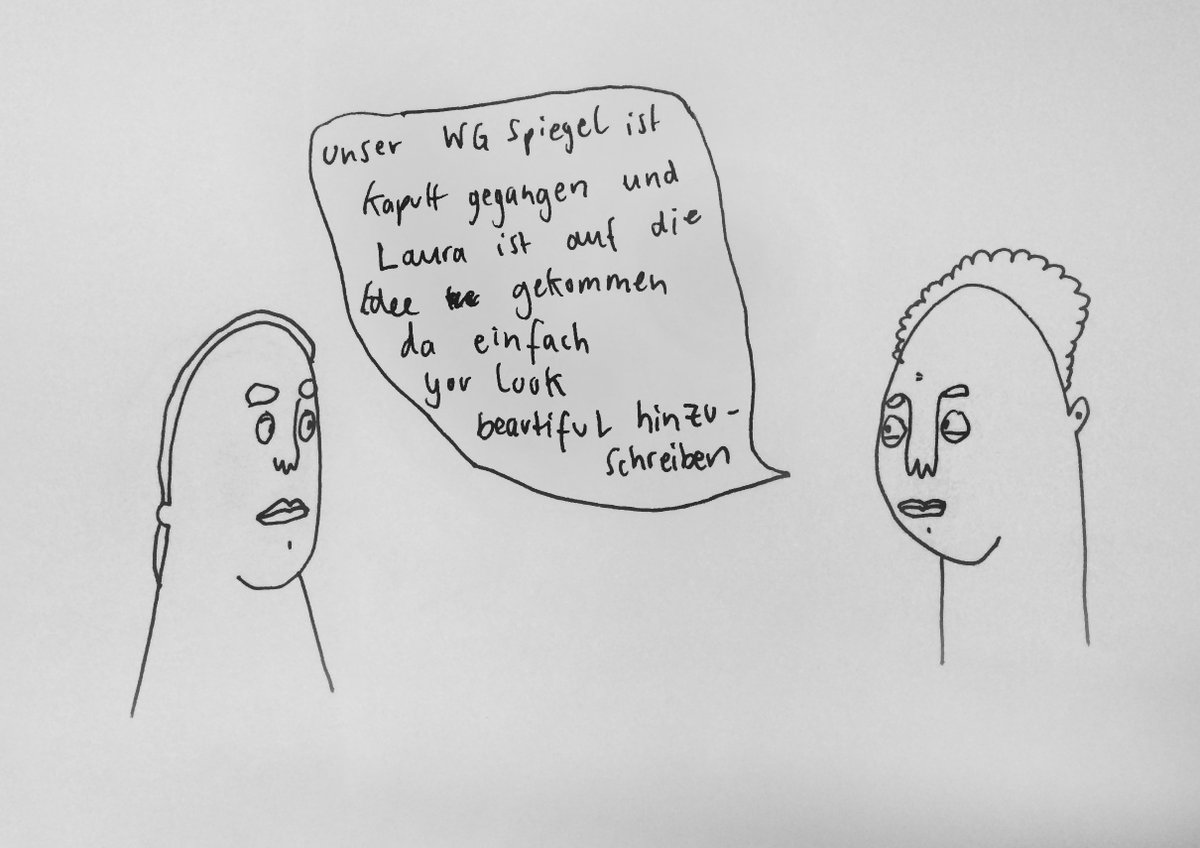 unser WG Spiegel ist
kaputt gegangen und
Laura ist auf die
Idee gekommen
da einfach
you look
beautiful hinzu-
schreiben